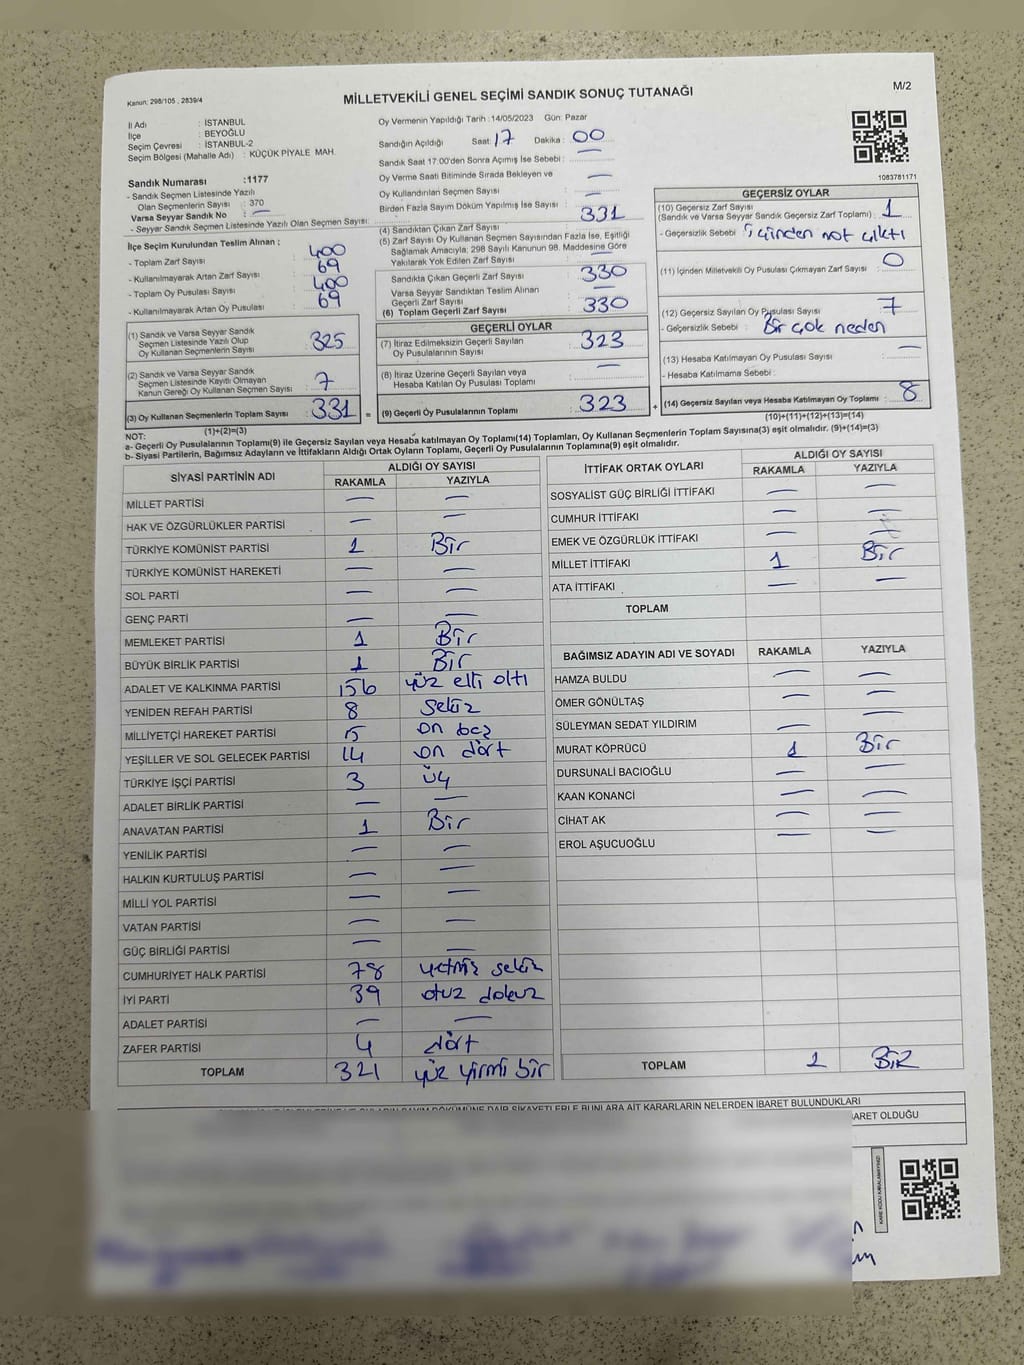 Kanun: 298/105 , 2839/4
MİLLETVEKİLİ GENEL SEÇİMİ SANDIK SONUÇ TUTANAĞI
M/2
İl Adı : İSTANBUL
İlçe : BEYOĞLU
Seçim Çevresi : İSTANBUL-2
Seçim Bölgesi (Mahalle Adı) : KÜÇÜK PİYALE MAH.
Sandık Numarası :1177
- Sandık Seçmen Listesinde Yazılı
Olan Seçmenlerin Sayısı : 370
Varsa Seyyar Sandık No : —
- Seyyar Sandık Seçmen Listesinde Yazılı Olan Seçmen Sayısı:
Oy Vermenin Yapıldığı Tarih : 14/05/2023 Gün: Pazar
Sandığın Açıldığı Saat: 17 Dakika : 00
Sandık Saat 17.00'den Sonra Açılmış İse Sebebi : —
Oy Verme Saati Bitiminde Sırada Bekleyen ve
Oy Kullandırılan Seçmen Sayısı : —
Birden Fazla Sayım Döküm Yapılmış İse Sayısı : —
1083781171
İlçe Seçim Kurulundan Teslim Alınan ;
- Toplam Zarf Sayısı : 400
- Kullanılmayarak Artan Zarf Sayısı : 69
- Toplam Oy Pusulası Sayısı : 400
- Kullanılmayarak Artan Oy Pusulası : 69
(1) Sandık ve Varsa Seyyar Sandık
Seçmen Listesinde Yazılı Olup
Oy Kullanan Seçmenlerin Sayısı : 325
(2) Sandık ve Varsa Seyyar Sandık
Seçmen Listesinde Kayıtlı Olmayan
Kanun Gereği Oy Kullanan Seçmen Sayısı : 7
(3) Oy Kullanan Seçmenlerin Toplam Sayısı : 331 =
(1)+(2)=(3)
(4) Sandıktan Çıkan Zarf Sayısı : 331
(5) Zarf Sayısı Oy Kullanan Seçmen Sayısından Fazla İse, Eşitliği
Sağlamak Amacıyla, 298 Sayılı Kanunun 98. Maddesine Göre
Yakılarak Yok Edilen Zarf Sayısı : —
Sandıkta Çıkan Geçerli Zarf Sayısı : 330
Varsa Seyyar Sandıktan Teslim Alınan
Geçerli Zarf Sayısı : —
(6) Toplam Geçerli Zarf Sayısı : 330
GEÇERLİ OYLAR
(7) İtiraz Edilmeksizin Geçerli Sayılan
Oy Pusulalarının Sayısı : 323
(8) İtiraz Üzerine Geçerli Sayılan veya
Hesaba Katılan Oy Pusulası Toplamı : —
(9) Geçerli Oy Pusulalarının Toplamı : 323 +
GEÇERSİZ OYLAR
(10) Geçersiz Zarf Sayısı
(Sandık ve Varsa Seyyar Sandık Geçersiz Zarf Toplamı) : 1
- Geçersizlik Sebebi : içinden not çıktı
(11) İçinden Milletvekili Oy Pusulası Çıkmayan Zarf Sayısı : 0
(12) Geçersiz Sayılan Oy Pusulası Sayısı : 7
- Geçersizlik Sebebi : Bir çok neden
(13) Hesaba Katılmayan Oy Pusulası Sayısı : —
- Hesaba Katılmama Sebebi :
(14) Geçersiz Sayılan veya Hesaba Katılmayan Oy Toplamı : 8
(10)+(11)+(12)+(13)=(14)
NOT:
a- Geçerli Oy Pusulalarının Toplamı(9) ile Geçersiz Sayılan veya Hesaba katılmayan Oy Toplamı(14) Toplamları, Oy Kullanan Seçmenlerin Toplam Sayısına(3) eşit olmalıdır. (9)+(14)=(3)
b- Siyasi Partilerin, Bağımsız Adayların ve İttifakların Aldığı Ortak Oyların Toplamı, Geçerli Oy Pusulalarının Toplamına(9) eşit olmalıdır.
SİYASİ PARTİNİN ADI ALDIĞI OY SAYISI
RAKAMLA YAZIYLA
MİLLET PARTİSİ — —
HAK VE ÖZGÜRLÜKLER PARTİSİ — —
TÜRKİYE KOMÜNİST PARTİSİ 1 Bir
TÜRKİYE KOMÜNİST HAREKETİ — —
SOL PARTİ — —
GENÇ PARTİ — —
MEMLEKET PARTİSİ 1 Bir
BÜYÜK BİRLİK PARTİSİ 1 Bir
ADALET VE KALKINMA PARTİSİ 156 yüz elli altı
YENİDEN REFAH PARTİSİ 8 sekiz
MİLLİYETÇİ HAREKET PARTİSİ 15 on beş
YEŞİLLER VE SOL GELECEK PARTİSİ 14 on dört
TÜRKİYE İŞÇİ PARTİSİ 3 üç
ADALET BİRLİK PARTİSİ — —
ANAVATAN PARTİSİ 1 Bir
YENİLİK PARTİSİ — —
HALKIN KURTULUŞ PARTİSİ — —
MİLLİ YOL PARTİSİ — —
VATAN PARTİSİ — —
GÜÇ BİRLİĞİ PARTİSİ — —
CUMHURİYET HALK PARTİSİ 78 yetmiş sekiz
İYİ PARTİ 39 otuz dokuz
ADALET PARTİSİ — —
ZAFER PARTİSİ 4 dört
TOPLAM 321 yüz yirmi bir
İTTİFAK ORTAK OYLARI ALDIĞI OY SAYISI
RAKAMLA YAZIYLA
SOSYALİST GÜÇ BİRLİĞİ İTTİFAKI — —
CUMHUR İTTİFAKI — —
EMEK VE ÖZGÜRLÜK İTTİFAKI — —
MİLLET İTTİFAKI 1 Bir
ATA İTTİFAKI — —
TOPLAM
BAĞIMSIZ ADAYIN ADI VE SOYADI RAKAMLA YAZIYLA
HAMZA BULDU — —
ÖMER GÖNÜLTAŞ — —
SÜLEYMAN SEDAT YILDIRIM — —
MURAT KÖPRÜCÜ 1 Bir
DURSUNALİ BACIOĞLU — —
KAAN KONANCİ — —
CİHAT AK — —
EROL AŞUCUOĞLU — —
TOPLAM 1 BİR
DÖKÜMÜNE DAİR ŞİKAYETLERLE BUNLARA AİT KARARLARIN NELERDEN İBARET BULUNDUKLARI
BARET OLDUĞU